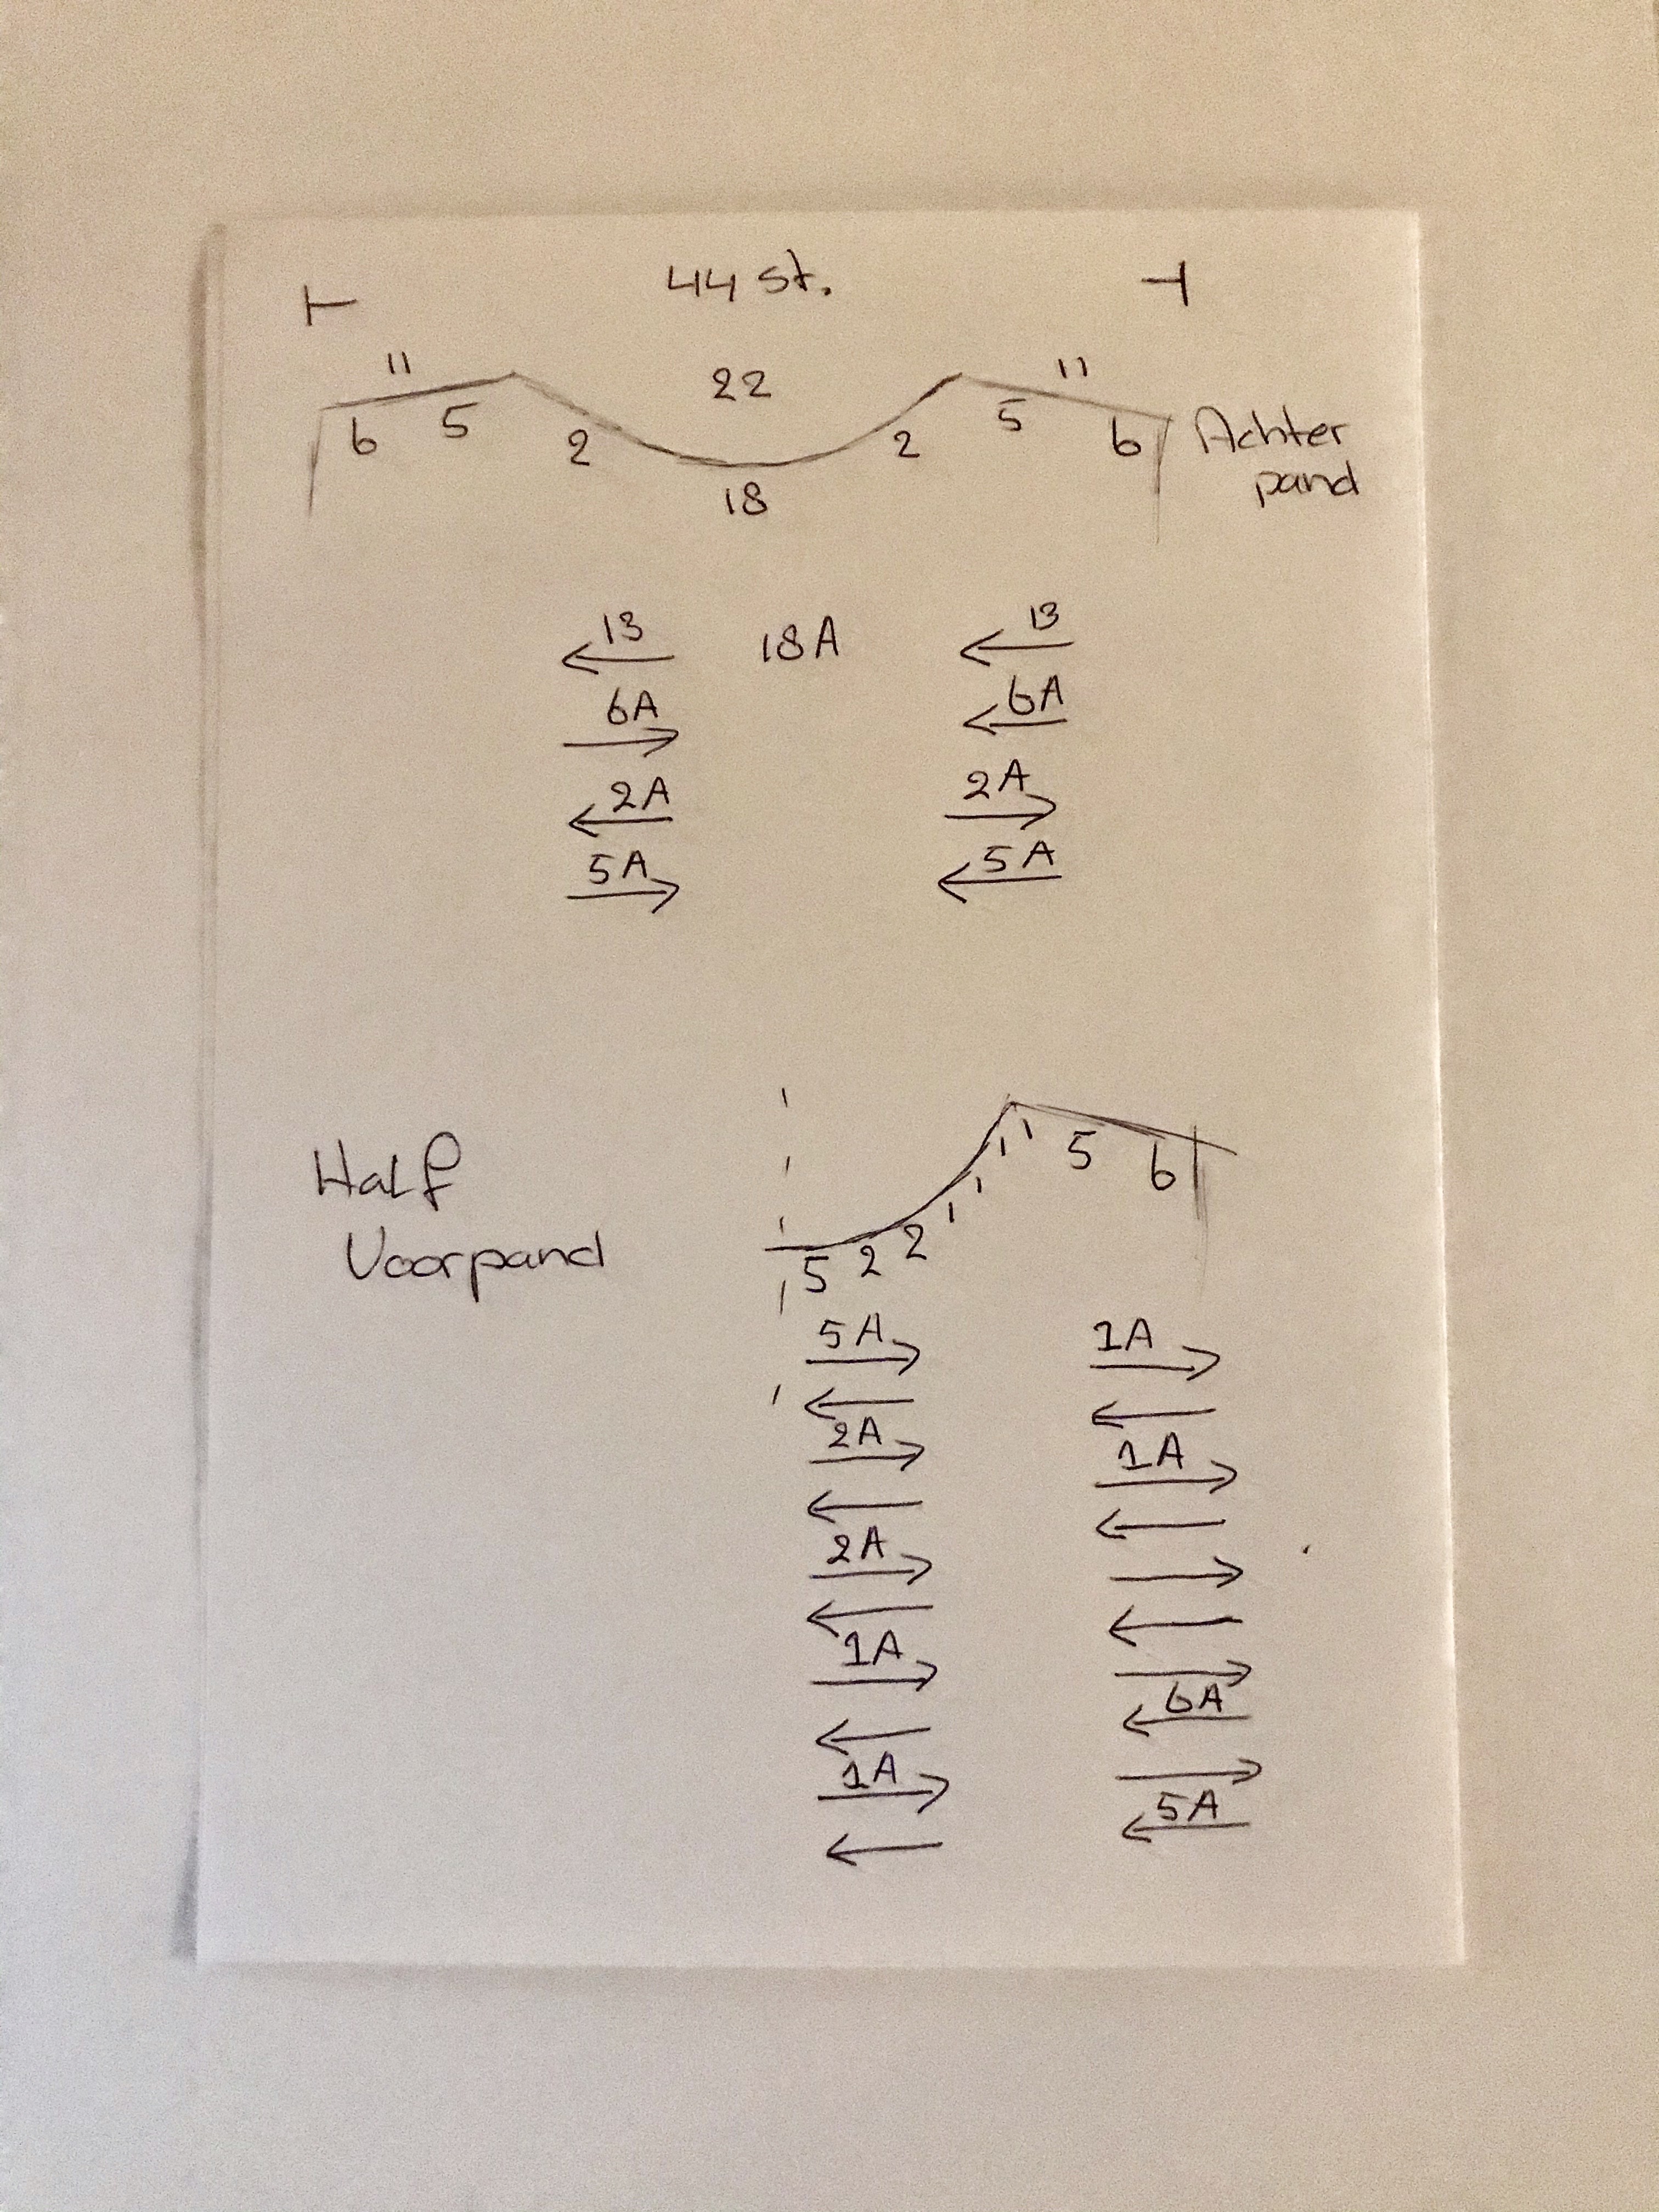 ⊢ 44 st. ⊣
11 22 11
6 5 2 18 2 5 6 Achter
pand
←13 18A ←13
6A→ ←6A
←2A 2A→
5A→ ←5A
Half
Voorpand
5 2 2 1 1 1 1 5 6
5A→ 1A→
← ←
2A→ 1A→
← ←
2A→ →
← ←
1A→ →
← ←6A
1A→ →
← ←5A